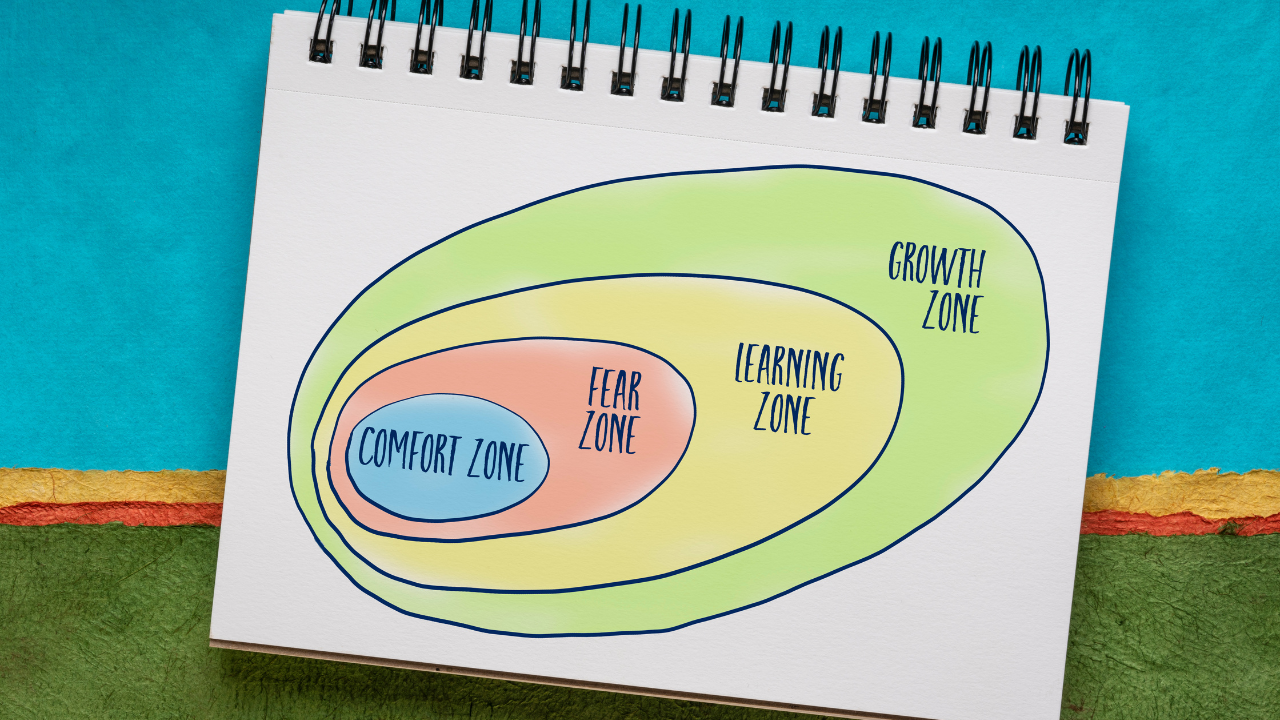 GROWTH
ZONE
LEARNING
ZONE
FEAR
ZONE
COMFORT ZONE